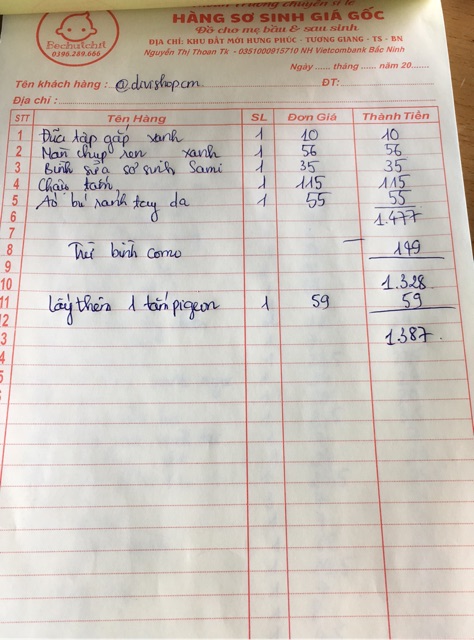 HÀNG SƠ SINH GIÁ GỐC
Bechutchit
0398.289.666
Đồ cho mẹ bầu & sau sinh
ĐỊA CHỈ: KHU ĐẤT MỚI HƯNG PHÚC - TƯƠNG GIANG - TS - BN
Nguyễn Thị Thoan Tk - 0351000915710 NH Vietcombank Bắc Ninh
Ngày ...... tháng ...... năm 20......
Tên khách hàng : @davishopcm ĐT:
Địa chỉ :
STT Tên Hàng SL Đơn Giá Thành Tiền
1 Đũa tập gắp xanh 1 10 10
2 Nan chụp ren xanh 1 56 56
3 Bình sữa sơ sinh Sami 1 35 35
4 Chậu tắm 1 115 115
5 Áo ba xanh tay da 1 55 55
6 1.477
7
8 Trừ bình como - 149
9
10 1.328
11 lấy thêm 1 tắm pigeon 1 59 59
12
3 1.387.
4
5